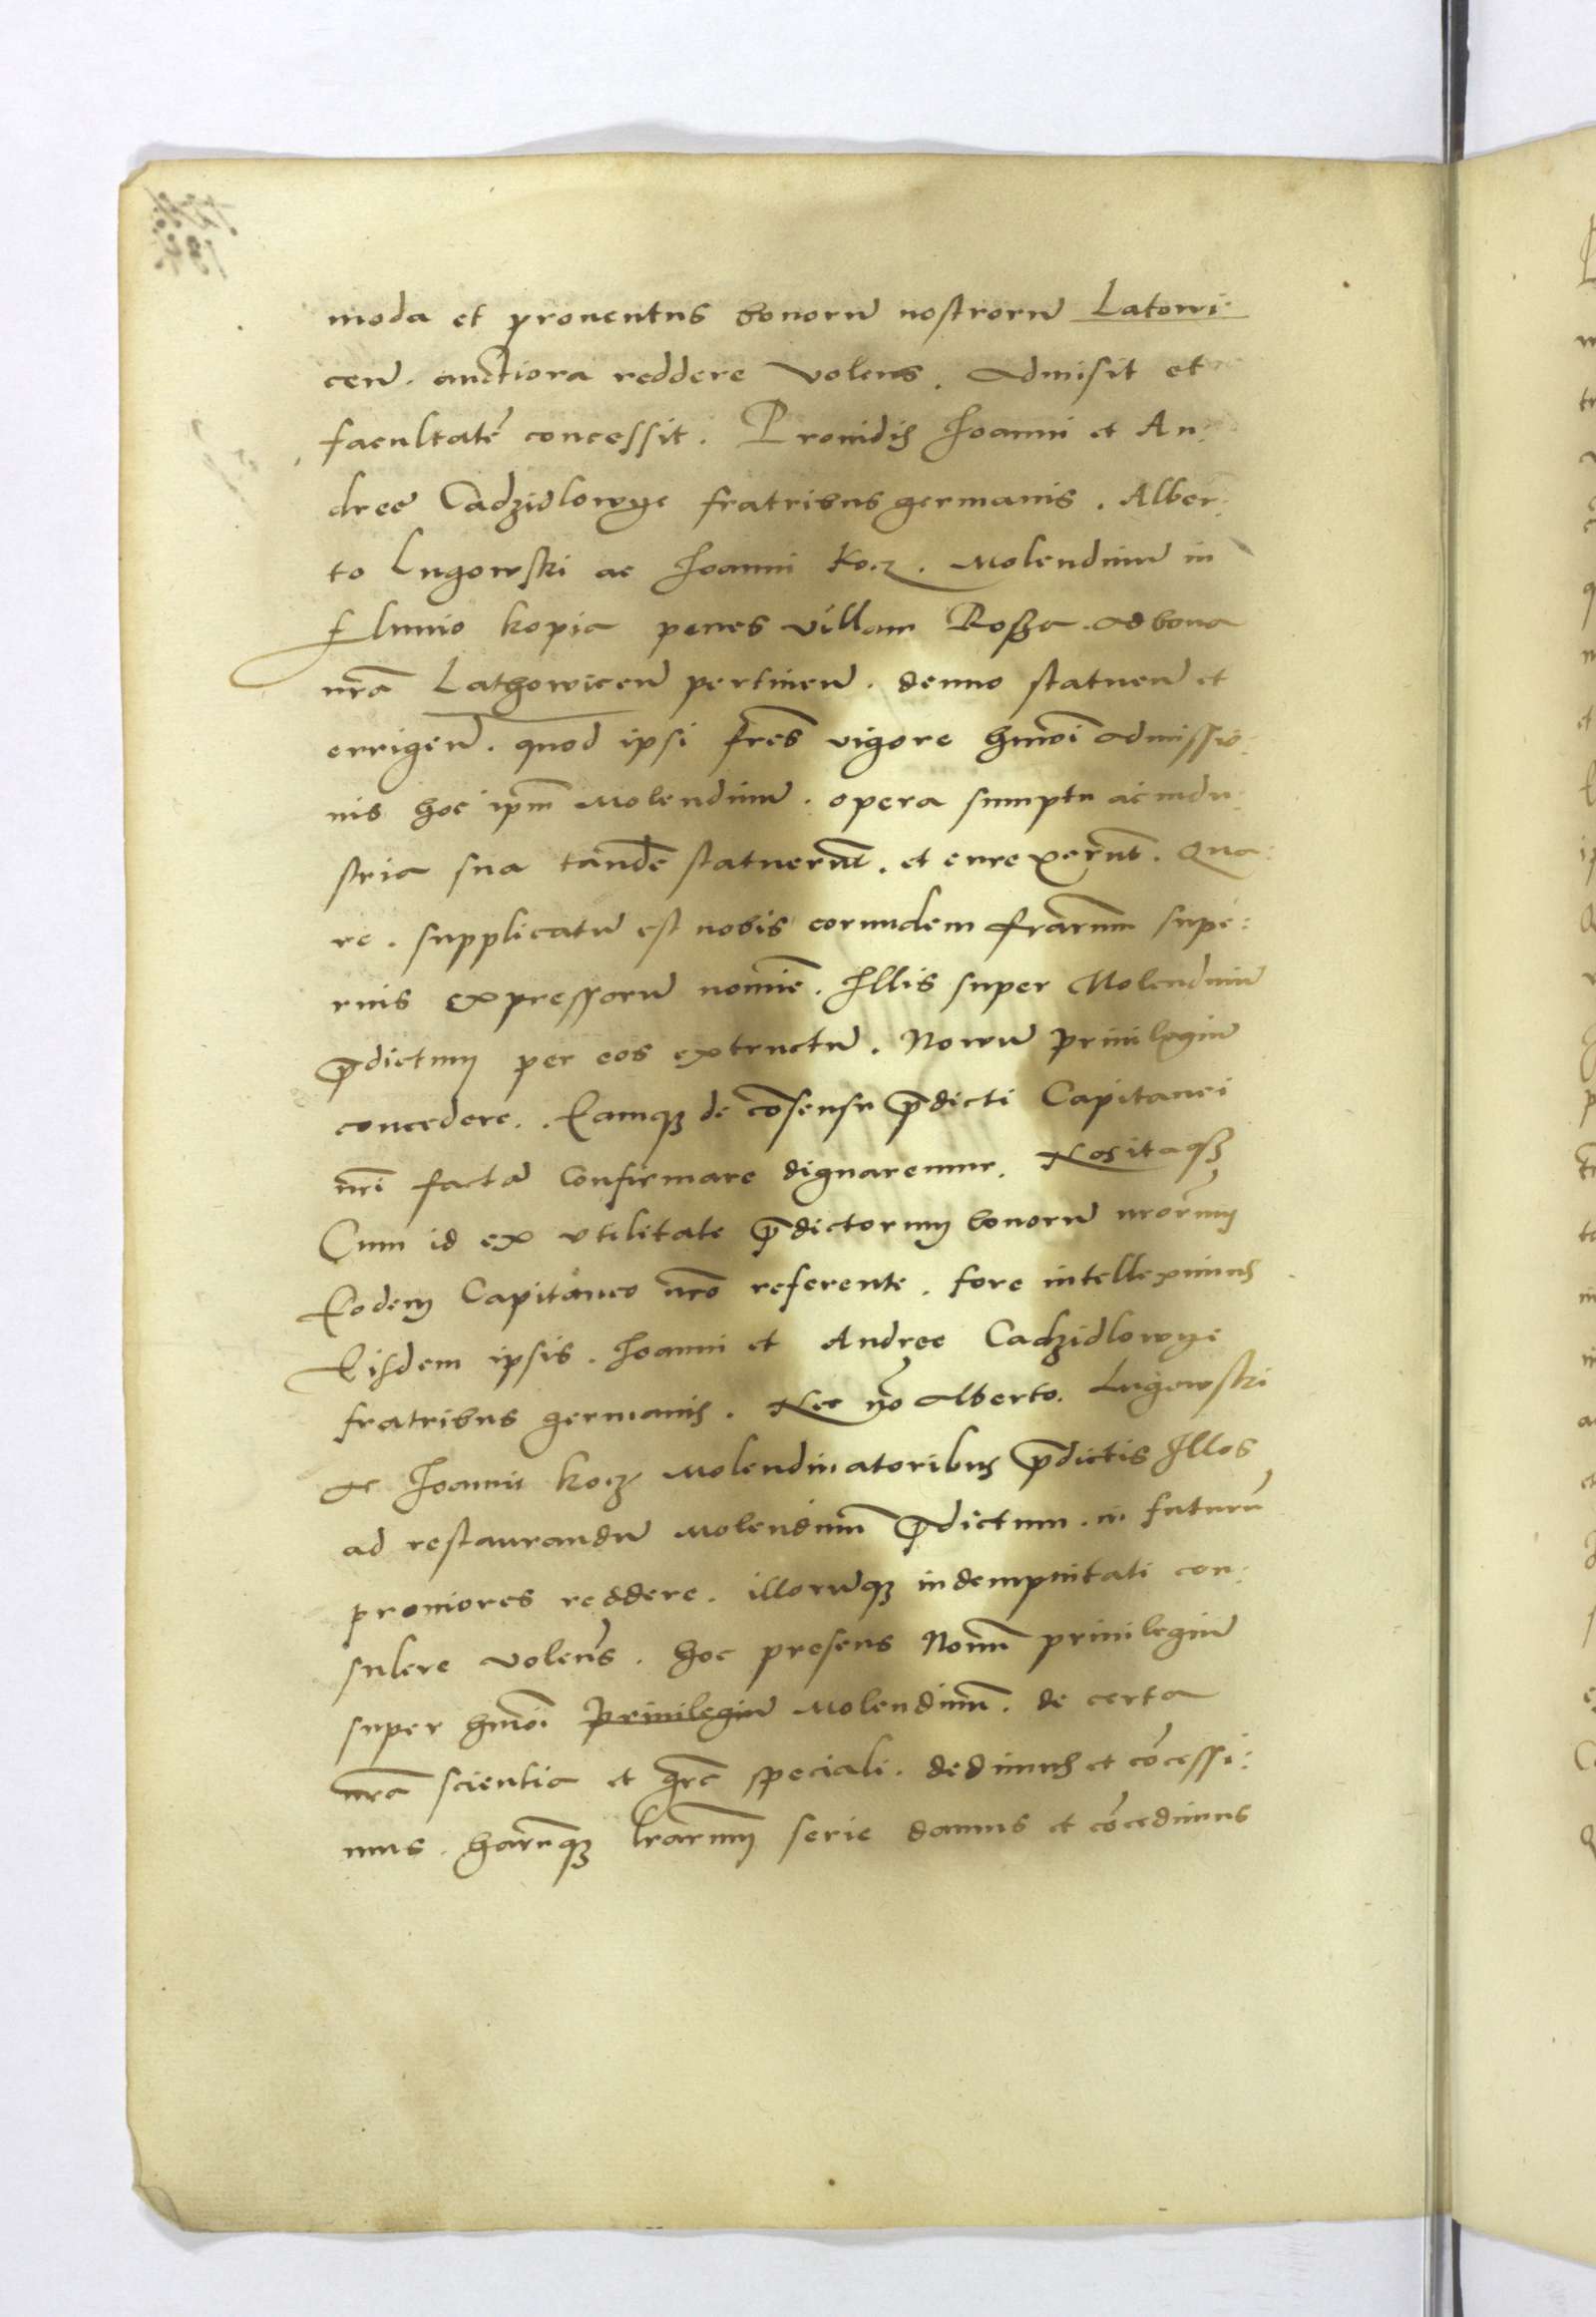 moda et prouentus bonorū nostrorū Latowi
cen̄. auctiora reddere volens. Admisit et
facultatē concessit. Prouidis Joanni et An:
dree Cadzidlowye fratribus germanis. Alber:
to Lugowski ac Joanni Kocz. Molendinū in
fluuio kopia penes villam Rosza ad bona
nr̄a Lathowicen̄ pertinen̄. denuo statuen̄ et
errigen̄. quod ipsi fr̄es vigore hmōi admissio:
nis hoc ipm̄ Molendinū. opera sumptu ac indu:
stria sua tandē statuerūt. et errexerūnt. Qua:
re. supplicatū est nobis eorundem fr̄arum supe:
rius expressorū nomīe. Illis super Molendinū
p̄dictum per eos extructū. Nowū priuilegiū
concedere. Eamqꝫ de cōsensu p̄dicti Capitanei
nr̄i factā confirmare dignaremur. Nos itaqꝫ
Cum id ex vtilitate p̄dictorum bonorū nr̄orum
Eodem Capitaneo nr̄o referente. fore intelleximus
Eisdem ipsis. Joanni et Andree Cadzidlowye
fratribus germanis. Nec nō Alberto. Lugowski
ac Joanni Kocz Molendinatoribus p̄dictis Illos
ad restaurandū Molendinū p̄dictum. in futurū
proniores reddere. illorūqꝫ indempnitati con:
sulere volens. hoc presens Nouū priuilegiū
super hmōi priuilegiū Molendinū. de certa
nr̄a scientia et gr̄a speciali. dedimus et cōcessi:
mus. harūqꝫ lr̄arum serie damus et cōcedimus